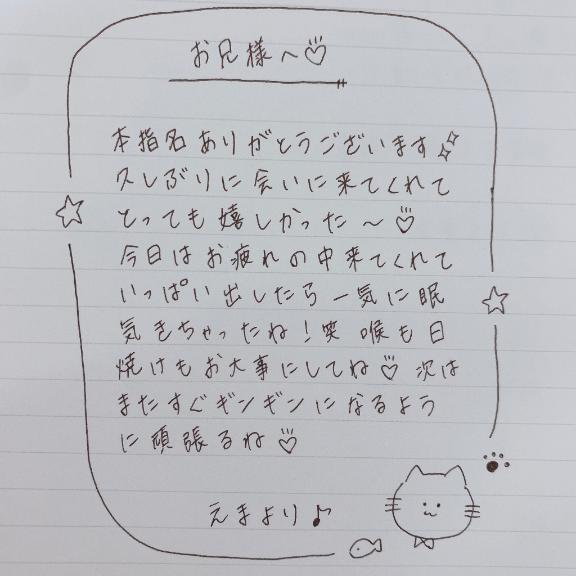 お兄様へ♡
本指名ありがとうございます
久しぶりに会いに来てくれて
とっても嬉しかった〜♡
今日はお疲れの中来てくれて
いっぱい出したら一気に眠
気きちゃったね!笑 喉も日
焼けもお大事にしてね♡ 次は
またすぐギンギンになるよう
に頑張るね♡
えまより♪